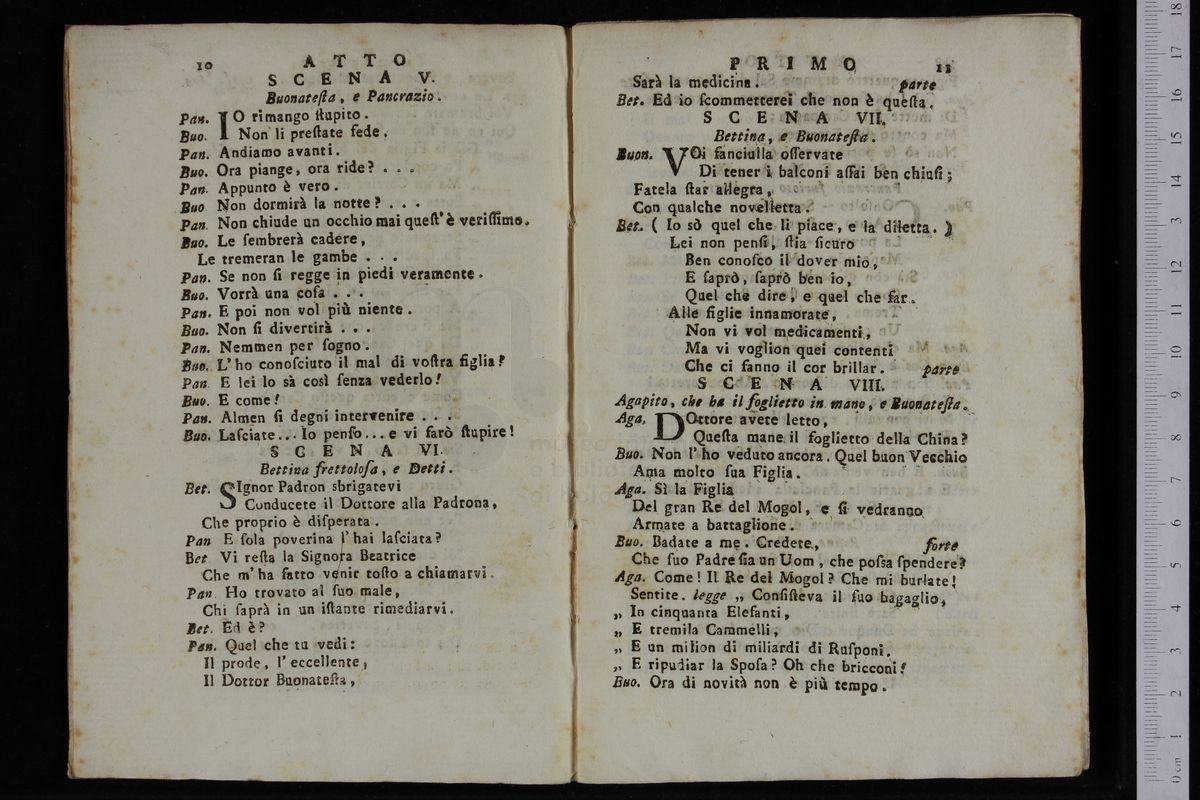 10 ATTO
SCENA V.
Buonateſta, e Pancrazio.
Pan. IO rimango ſtupito.
Buo. Non li preſtate fede.
Pan. Andiamo avanti.
Buo. Ora piange, ora ride? . . .
Pan. Appunto è vero.
Buo Non dormirà la notte? . . .
Pan. Non chiude un occhio mai queſt'è veriſſimo.
Buo. Le ſembrerà cadere,
Le tremeran le gambe . . .
Pan. Se non ſi regge in piedi veramente.
Buo. Vorrà una coſa . . .
Pan. E poi non vol più niente.
Buo. Non ſi divertirà . . .
Pan. Nemmen per ſogno.
Buo. L'ho conoſciuto il mal di voſtra figlia?
Pan. E lei lo sà così ſenza vederlo!
Buo. E come!
Pan. Almen ſi degni intervenire . . .
Buo. Laſciate... Io penſo... e vi farò ſtupire!
SCENA VI.
Bettina frettoloſa, e Detti.
Bet. SIgnor Padron sbrigatevi
Conducete il Dottore alla Padrona,
Che proprio è diſperata.
Pan E ſola poverina l'hai laſciata?
Bet Vi reſta la Signora Beatrice
Che m'ha fatto venir toſto a chiamarvi.
Pan Ho trovato al ſuo male,
Chi ſaprà in un iſtante rimediarvi.
Bet. Ed è?
Pan. Quel che tu vedi:
Il prode, l'eccellente,
Il Dottor Buonateſta,
PRIMO 11
Sarà la medicina. parte
Bet. Ed io ſcommetterei che non è queſta.
SCENA VII.
Bettina, e Buonateſta.
Buon. VOi fanciulla oſſervate
Di tener i balconi aſſai ben chiuſi;
Fatela ſtar allegra,
Con qualche novelletta.
Bet. ( Io sò quel che li piace, e la diletta. )
Lei non penſi, ſtia ſicuro
Ben conoſco il dover mio,
E ſaprò, ſaprò ben io,
Quel che dire, e quel che far.
Alle figlie innamorate,
Non vi vol medicamenti,
Ma vi voglion quei contenti
Che ci fanno il cor brillar. parte
SCENA VIII.
Agapito, che ha il foglietto in mano, e Buonateſta.
Aga. DOttore avete letto,
Queſta mane il foglietto della China?
Buo. Non l'ho veduto ancora. Quel buon Vecchio
Ama molto ſua Figlia.
Aga. Sì la Figlia
Del gran Re del Mogol, e ſi vedranno
Armate a battaglione.
Buo. Badate a me. Credete, forte
Che ſuo Padre ſia un Uom, che poſsa ſpendere?
Aga. Come! Il Re del Mogol? Che mi burlate!
Sentite. legge „ Conſiſteva il ſuo bagaglio,
„ In cinquanta Elefanti,
„ E tremila Cammelli,
„ E un milion di miliardi di Ruſponi.
„ E ripudiar la Spoſa? Oh che bricconi!
Buo. Ora di novità non è più tempo.
0 cm 1 2 3 4 5 6 7 8 9 10 11 12 13 14 15 16 17 18